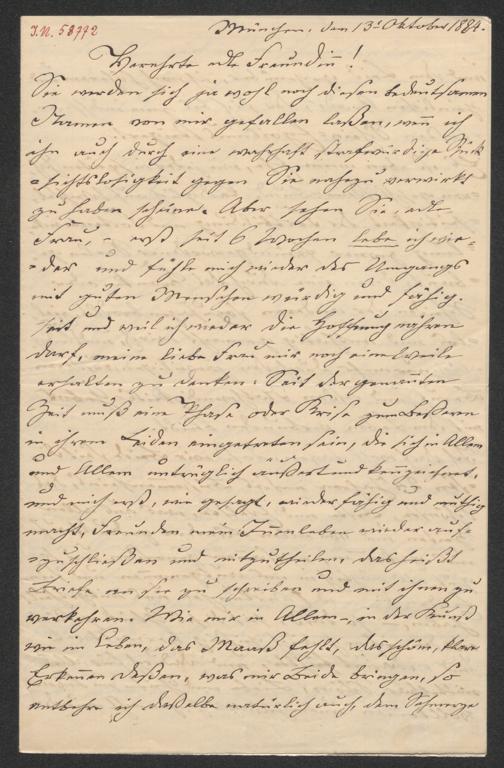 I.N. 58772
München, den 13t Oktober 1884.
Verehrte edle Freundinn!
Sie werden sich ja wohl noch diesen bedeutsamen
Namen von mir gefallen laßen, wenn ich
ihn auch durch eine wahrhaft strafwürdige Rück-
=sichtslosigkeit gegen Sie nahezu verwirkt
zu haben scheine. Aber sehen Sie, edle
Frau, – erst seit 6 Wochen lebe ich wie-
=der und fühle mich wieder des Umgangs
mit guten Menschen würdig und fähig.
seit und weil ich wieder die Hoffnung nähren
darf, meine liebe Frau mir noch eine Weile
erhalten zu denken. Seit der genannten
Zeit muß eine Phase oder Krise zum Beßern
in ihrem Leiden eingetreten sein, die sich in Allem
und Allem untrüglich äußert und kennzeichnet,
und mich erst, wie gesagt, wieder fähig und muthig
macht, Freunden mein Innenleben wieder auf-
=zuschließen und mitzutheilen, das heißt
Briefe an sie zu schreiben und mit ihnen zu
verkehren. Wie mir in Allem –, in der Kunst
wie im Leben, das Maaß fehlt, das schöne, klare
Erkennen deßen, was mir Beide bringen, so
entbehre ich daßelbe natürlich auch, dem Schmerze